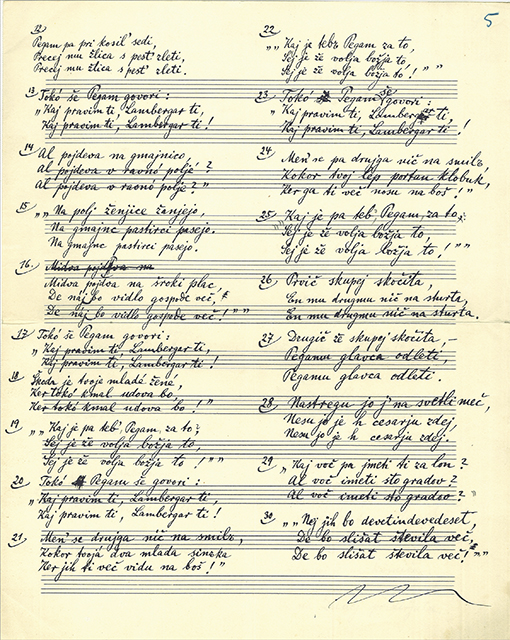 5
12
Pegam pa pri kosil' sedi,
Precej mu žlica s pest' zleti,
Precej mu žlica s pest' zleti.
13 Tokó še Pegam govori:
„Kaj pravim ti, Lambergar ti,
Kaj pravim ti, Lambergar ti!
14 Al pojdeva na gmajnico,
Al pojdeva v ravno polje?
Al pojdeva v ravno polje?"
15 „„Na polj' ženjice žanjejo,
Na gmajnc pastirci pasejo.
Na gmajnc pastirci pasejo.
16. Midva pojdva na
Midva pojdva na široki plac,
De náj bo vidlo gospóde več,
De náj bo vidlo gospóde več!""
17 Tokó še Pegam govori:
„Kaj pravim ti, Lambergar ti,
Kaj pravim ti, Lambergar ti!
18 Škoda je tvoje mlade žené,
Ker tokó kmal udova bo,
Ker tokó kmal udova bo!
19 „„Kaj je pa teb', Pegam, za to;
Sej je že volja božja to,
Sej je že volja božja to!""
20 Tokó Pegam še govori:
„Kaj pravim ti, Lambergar ti,
Kaj pravim ti, Lambergar ti!
21 Men' se drujga nič na smil',
Kokor tvoja dva mlada sinka
Ker jih ti več vidu na boš!"
22
„„Kaj je teb' Pegam za to,
Sej je že volja božja to,
Sej je že volja božja to!""
23 Tokó Pegam še govori:
„Kaj pravim ti, Lambergar ti,
Kaj pravim ti, Lambergar ti!
24 Men' se pa drujga nič na smil',
Kokor tvoj lep portan klobuk,
Ker ga ti več nosu na boš!"
25 Kaj je pa teb' Pegam, za to;
Sej je že volja božja to,
Sej je že volja božja to!""
26 Prvič skupej skočita,
En mu drugmu nič na sturta,
En mu drugmu nič na sturta.
27 Drugič že skupej skočita,—
Pegamu glavca odleti,
Pegamu glavca odleti.
28 Nastregu jo j' na svetli meč,
Nesu jo je h cesarju zdej,
Nesu jo je h cesarju zdej.
29 „Kaj voč pa jmeti ti za lon?
Al voč imeti sto gradov?
Al voč imeti sto gradov?"
30 „„Nej jih bo devetindevedeset,
De bo slišat števila več,
De bo slišat števila več!""